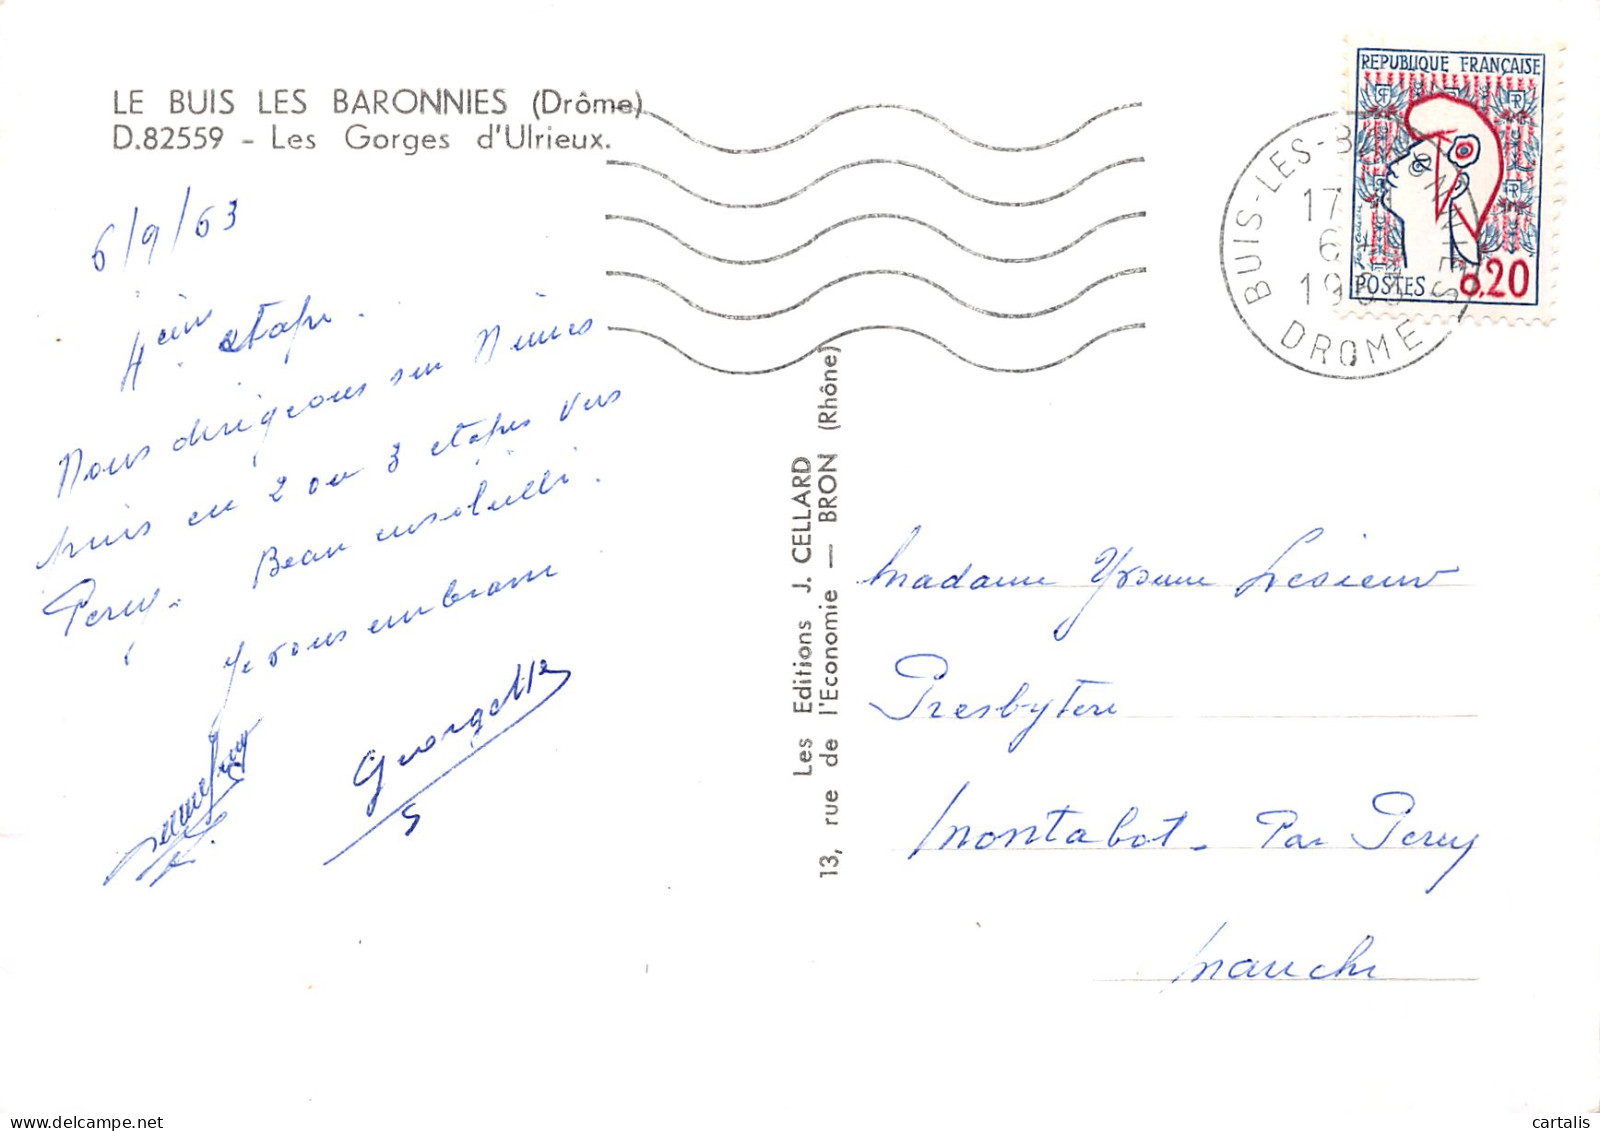 LE BUIS LES BARONNIES (Drôme)
D.82559 - Les Gorges d'Ulrieux.
6/9/63
4eim
etape.
Nous dirigeons sur Nimes
puis en 2 ou 3 etapes vers
Percy. Beau ensoleillé.
Je vous embrasse
Georgette
Les Editions J. CELLARD
13, rue de l'Economie — BRON (Rhône)
REPUBLIQUE FRANÇAISE
POSTES 0,20
BUIS-LES-BARONNIES
17
6
1963
DROME
Madame Yvonne Lesieur
Presbytere
Montabot - Par Percy
Manche
cartalis